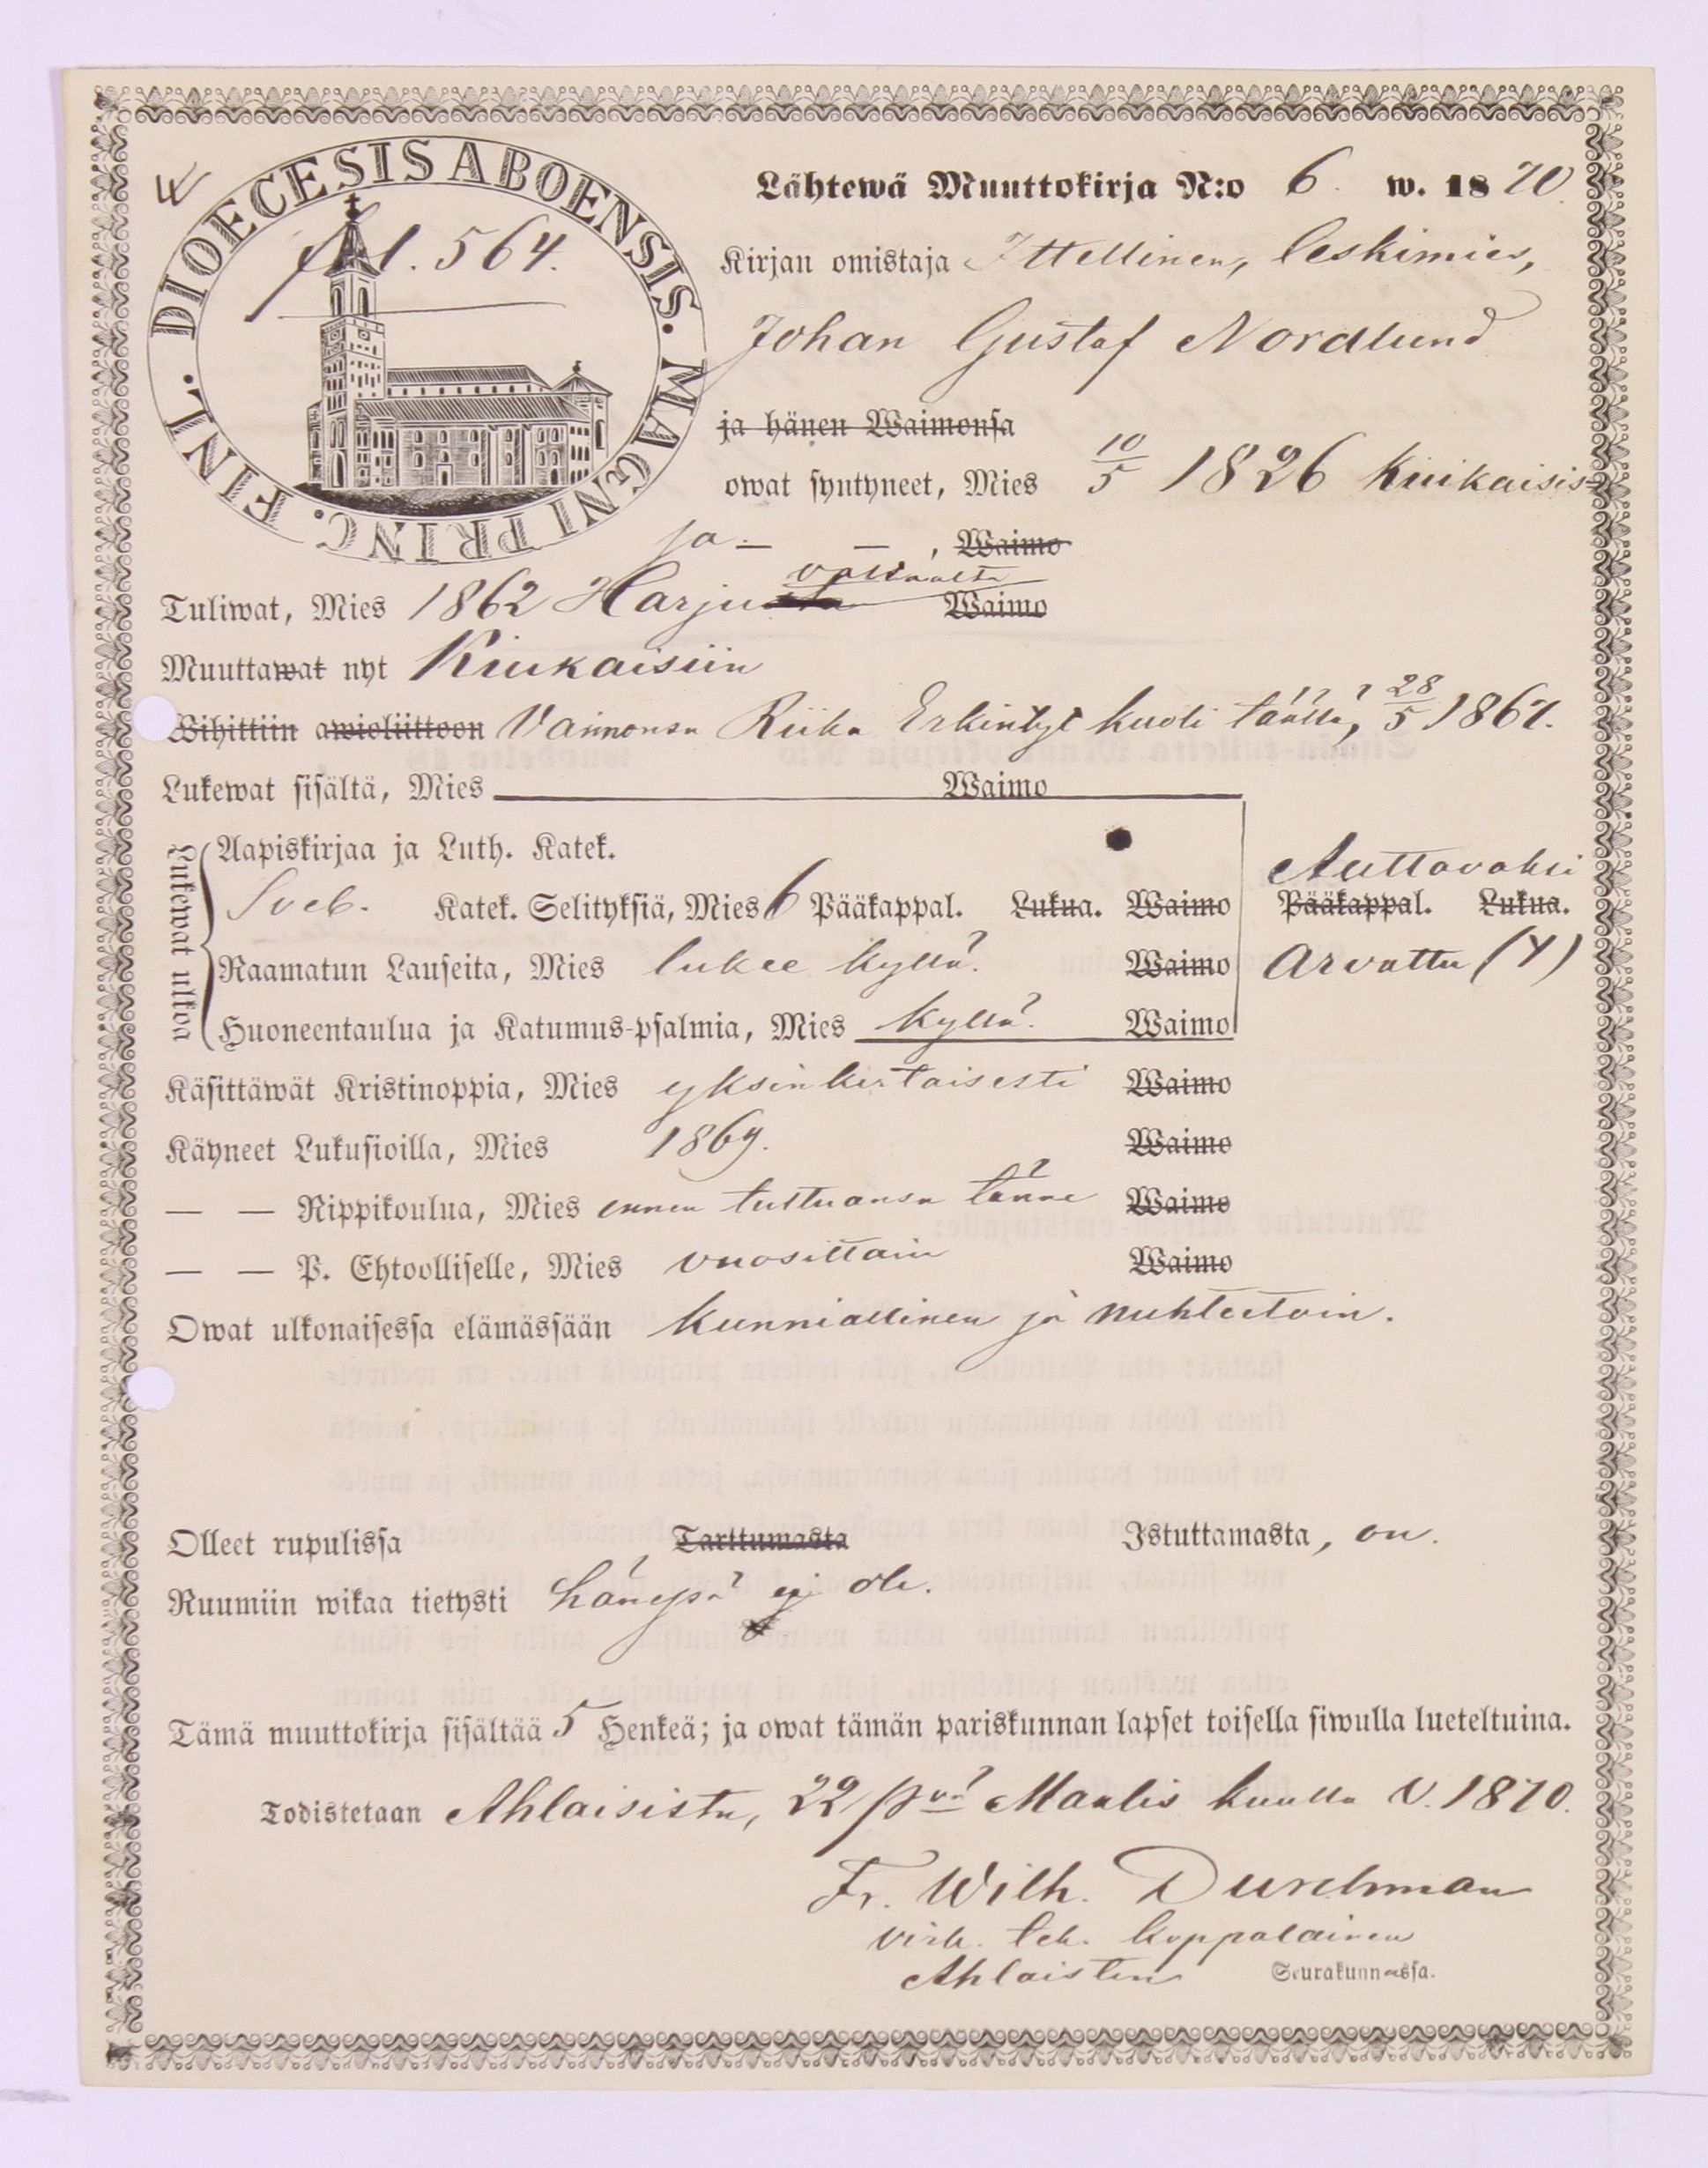 DIOECESIS ABOENSIS. MAGNI PRINC. FINL.
fol. 564.
Lähtewä Muuttokirja N:o 6. w. 1870.
Kirjan omistaja Ittellinen, leskimies,
Johan Gustaf Nordlund
ja hänen Waimonsa
owat syntyneet, Mies 10/5 1826 Kiukaisis=
sa — — , Waimo
valtaalta
Tuliwat, Mies 1862 Harju Waimo
Muuttawat nyt Kiukaisiin
Wihittiin awioliittoon Vaimonsa Riika Erkintyt kuoli täällä, 28/5 1867.
Lukewat sisältä, Mies Waimo
Lukewat ulkoa
Aapiskirjaa ja Luth. Katek.
Auttavaksi
Sveb. Katek. Selityksiä, Mies 6 Pääkappal. Lukua. Waimo Pääkappal. Lukua.
Raamatun Lauseita, Mies lukee kyllä. Waimo Arvattu (Y)
Huoneentaulua ja Katumus-psalmia, Mies kyllä. Waimo
Käsittäwät Kristinoppia, Mies yksinkertaisesti Waimo
Käyneet Lukusioilla, Mies 1869. Waimo
— — Rippikoulua, Mies ennen tultuansa tänne Waimo
— — P. Ehtoolliselle, Mies vuosittain Waimo
Owat ulkonaisessa elämässään kunniallinen ja nuhteetoin.
Olleet rupulissa Tarttumasta Istuttamasta, on.
Ruumiin wikaa tietysti hänesä ei ole.
Tämä muuttokirja sisältää 5 Henkeä; ja owat tämän pariskunnan lapset toisella siwulla lueteltuina.
Todistetaan Ahlaisista, 22 p:vä Maalis kuulla v. 1870.
Fr. Wilh. Durchman
virk. tek. kappalainen
Ahlaisten Seurakunnassa.